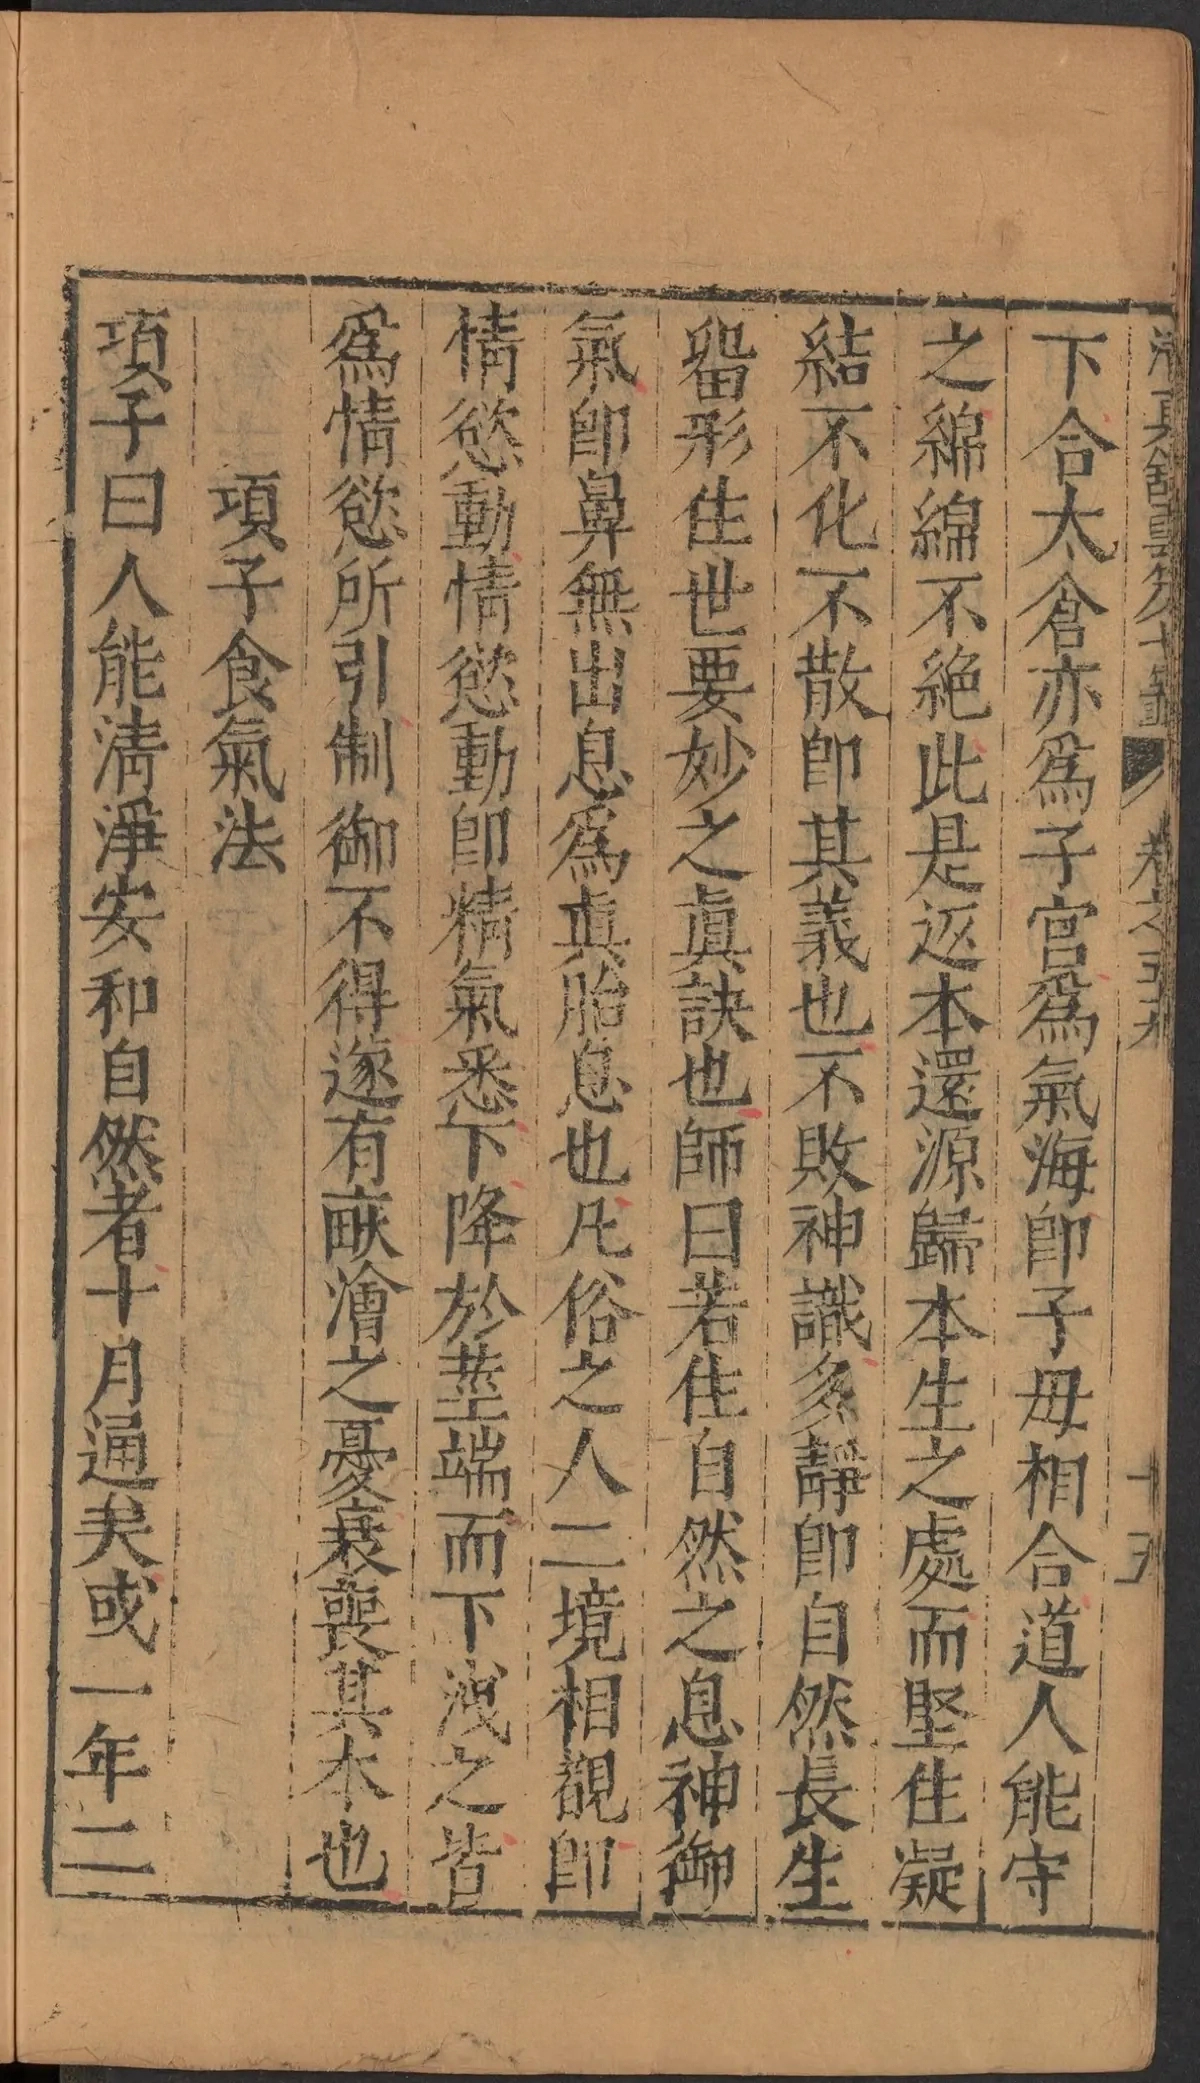 卷之五九
十五
下合太倉亦爲子宮爲氣海卽子母相合道人能守
之綿綿不絕此是返本還源歸本生之處而堅住凝
結不化不散卽其義也不敗神識多靜卽自然長生
留形住世要妙之眞訣也師曰若住自然之息神御
氣卽鼻無出息爲眞胎息也凡俗之人二境相覩卽
情慾動情慾動卽精氣悉下降於莖端而下洩之皆
爲情慾所引制御不得遂有畎澮之憂衰喪其本也
項子食氣法
項子曰人能清淨安和自然者十月通矣或一年二